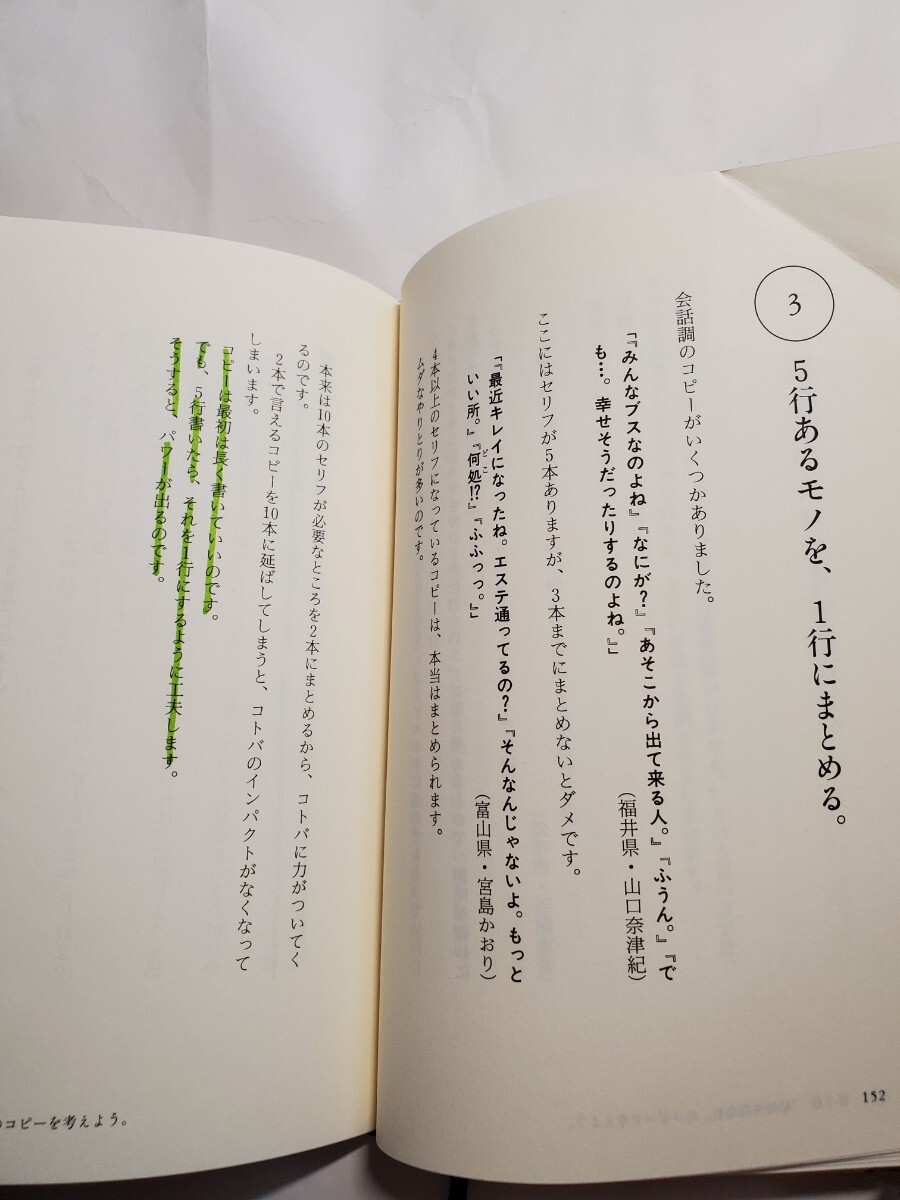 3
5行あるモノを、1行にまとめる。
会話調のコピーがいくつかありました。
「『みんなブスなのよね』『なにが?』『あそこから出て来る人。』『ふうん。』『で
も…。幸せそうだったりするのよね。』」
(福井県・山口奈津紀)
ここにはセリフが5本ありますが、3本までにまとめないとダメです。
「『最近キレイになったね。エステ通ってるの?』『そんなんじゃないよ。もっと
いい所。』『何処!?』『ふふっっ。』」
どこ
(富山県・宮島かおり)
4本以上のセリフになっているコピーは、本当はまとめられます。
ムダなやりとりが多いのです。
152
本来は10本のセリフが必要なところを2本にまとめるから、コトバに力がついてく
るのです。
2本で言えるコピーを10本に延ばしてしまうと、コトバのインパクトがなくなって
しまいます。
コピーは最初は長く書いていいのです。
でも、5行書いたら、それを1行にするように工夫します。
そうすると、パワーが出るのです。
のコピーを考えよう。